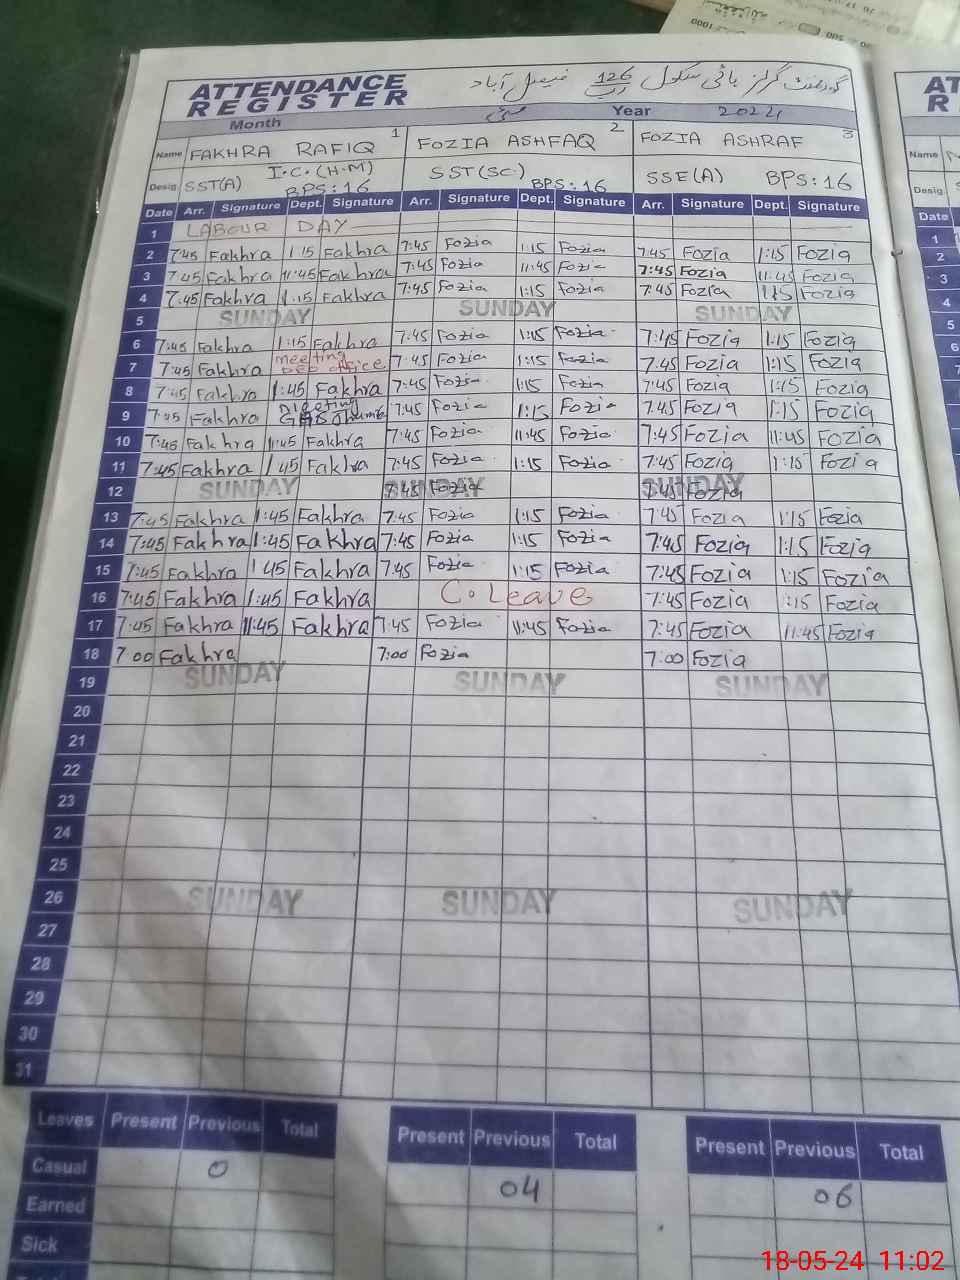 ATTENDANCE REGISTER گورنمنٹ گرلز ہائی سکول 126 ر ب فیصل آباد
Month مئی Year 2024
Name FAKHRA RAFIQ 1 FOZIA ASHFAQ 2 FOZIA ASHRAF 3
Desig. SST(A) I.C.(H.M) BPS:16 SST(SC) BPS:16 SSE(A) BPS:16
Date Arr. Signature Dept. Signature Arr. Signature Dept. Signature Arr. Signature Dept. Signature
1 LABOUR DAY
2 7:45 Fakhra 1:15 Fakhra 7:45 Fozia 1:15 Fozia 7:45 Fozia 1:15 Fozia
3 7:45 Fakhra 11:45 Fakhra 7:45 Fozia 11:45 Fozia 7:45 Fozia 11:45 Fozia
4 7:45 Fakhra 1:15 Fakhra 7:45 Fozia 1:15 Fozia 7:45 Fozia 1:15 Fozia
5 SUNDAY SUNDAY SUNDAY
6 7:45 Fakhra 1:15 Fakhra 7:45 Fozia 1:15 Fozia 7:45 Fozia 1:15 Fozia
7 7:45 Fakhra meeting office 7:45 Fozia 1:15 Fozia 7:45 Fozia 1:15 Fozia
8 7:45 Fakhra 1:45 Fakhra 7:45 Fozia 1:15 Fozia 7:45 Fozia 1:15 Fozia
9 7:45 Fakhra Meeting 7:45 Fozia 1:15 Fozia 7:45 Fozia 1:15 Fozia
10 7:45 Fakhra 11:45 Fakhra 7:45 Fozia 11:45 Fozia 7:45 Fozia 11:45 Fozia
11 7:45 Fakhra 1 45 Fakhra 7:45 Fozia 1:15 Fozia 7:45 Fozia 1:15 Fozia
12 SUNDAY SUNDAY 7:45 Fozia SUNDAY 7:45 Fozia
13 7:45 Fakhra 1:45 Fakhra 7:45 Fozia 1:15 Fozia 7:45 Fozia 1:15 Fozia
14 7:45 Fakhra 1:45 Fakhra 7:45 Fozia 1:15 Fozia 7:45 Fozia 1:15 Fozia
15 7:45 Fakhra 1 45 Fakhra 7:45 Fozia 1:15 Fozia 7:45 Fozia 1:15 Fozia
16 7:45 Fakhra 1:45 Fakhra C.Leave 7:45 Fozia 1:15 Fozia
17 7:45 Fakhra 11:45 Fakhra 7:45 Fozia 11:45 Fozia 7:45 Fozia 11:45 Fozia
18 7 00 Fakhra 7:00 Fozia 7:00 Fozia
19 SUNDAY SUNDAY SUNDAY
20
21
22
23
24
25
26 SUNDAY SUNDAY SUNDAY
27
28
29
30
31
Leaves Present Previous Total Present Previous Total Present Previous Total
Casual 0 04 06
Earned
Sick
18-05-24 11:02
AT
R
Name
Desig
Date
1
2
3
4
5
6
7